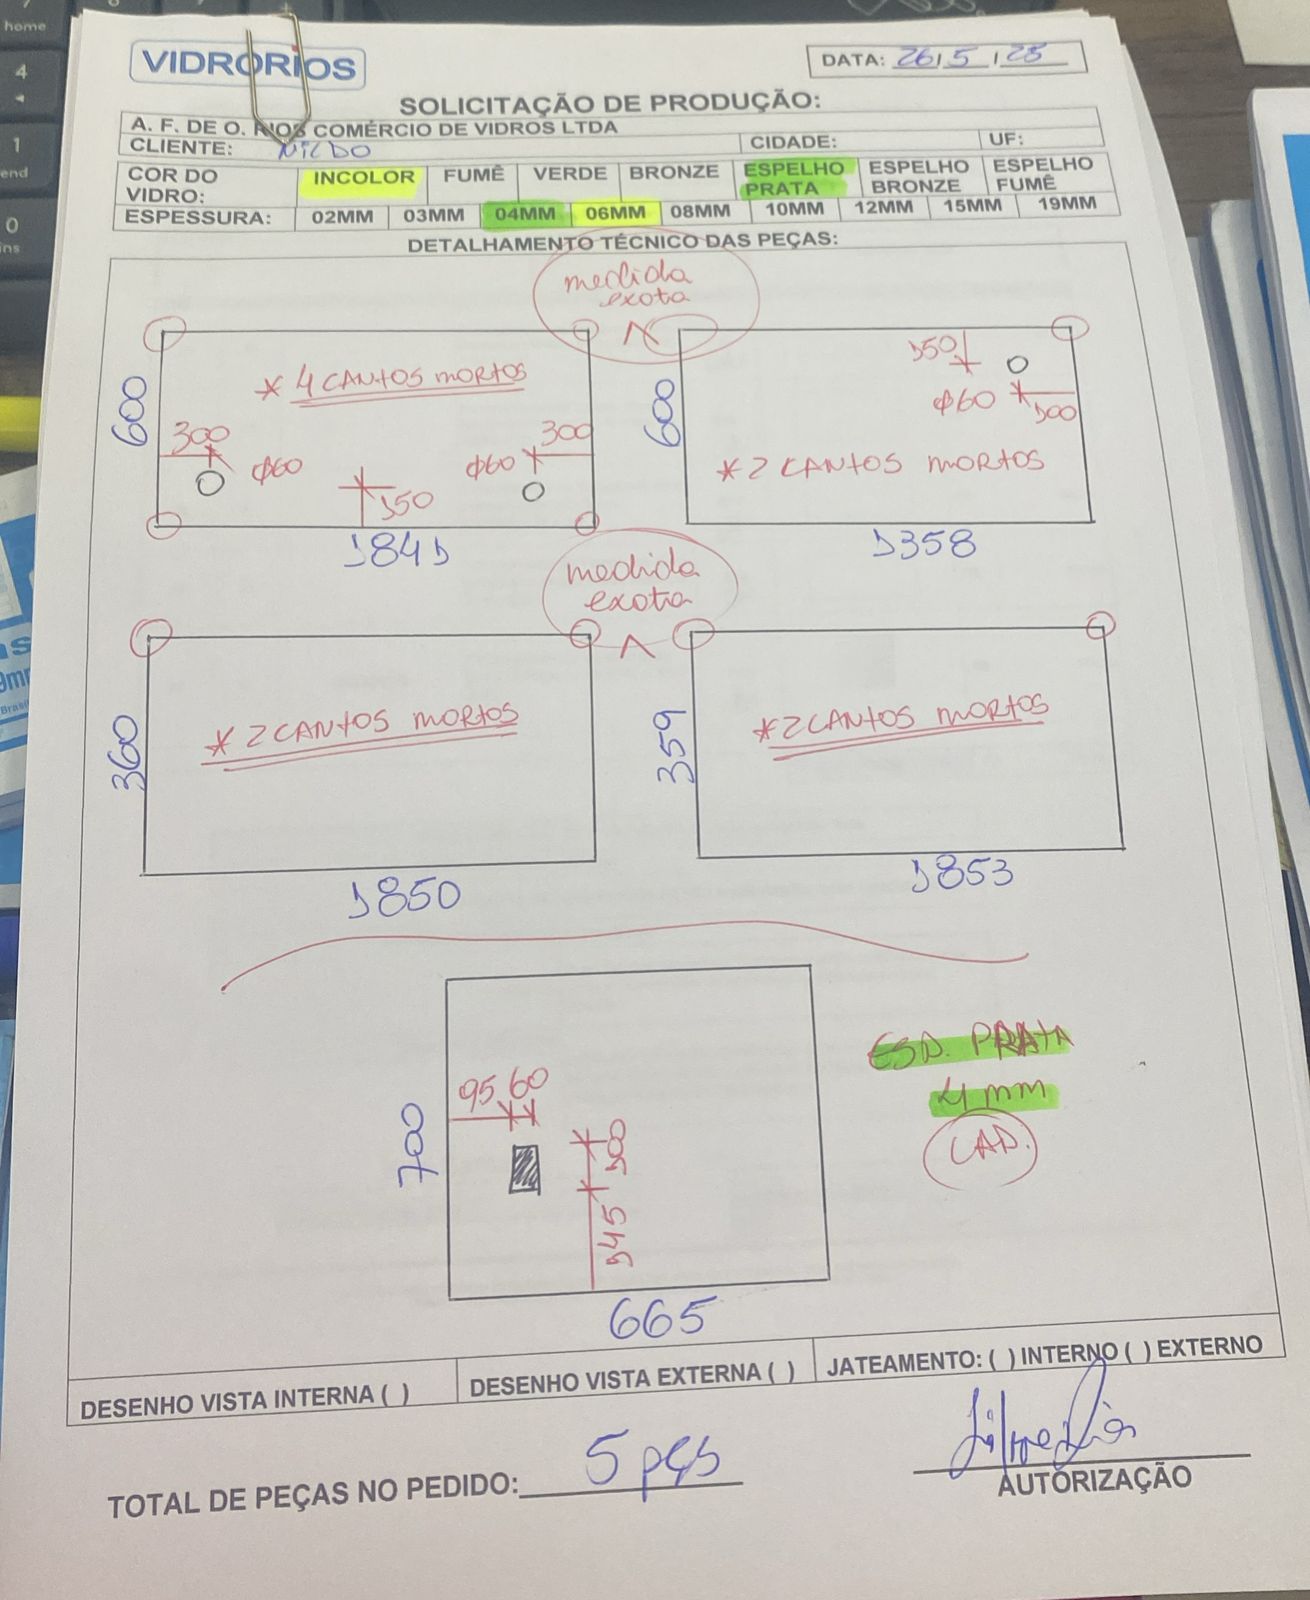 VIDRORIOS
DATA: 26/5/25
SOLICITAÇÃO DE PRODUÇÃO:
A. F. DE O. RIOS COMÉRCIO DE VIDROS LTDA
CLIENTE: NILDO CIDADE: UF:
COR DO VIDRO: INCOLOR FUMÊ VERDE BRONZE ESPELHO PRATA ESPELHO BRONZE ESPELHO FUMÊ
ESPESSURA: 02MM 03MM 04MM 06MM 08MM 10MM 12MM 15MM 19MM
DETALHAMENTO TÉCNICO DAS PEÇAS:
medida
exata
600
* 4 CANTOS MORTOS
300
φ60
150
φ60
300
1841
600
150
φ60
100
* 2 CANTOS MORTOS
1358
medida
exata
360
* 2 CANTOS MORTOS
1850
359
* 2 CANTOS MORTOS
1853
700
95 60
100
145
665
ESP. PRATA
4mm
LAP.
DESENHO VISTA INTERNA ( ) DESENHO VISTA EXTERNA ( ) JATEAMENTO: ( ) INTERNO ( ) EXTERNO
TOTAL DE PEÇAS NO PEDIDO: 5 pçs
AUTORIZAÇÃO
home
4
1
end
0
ins